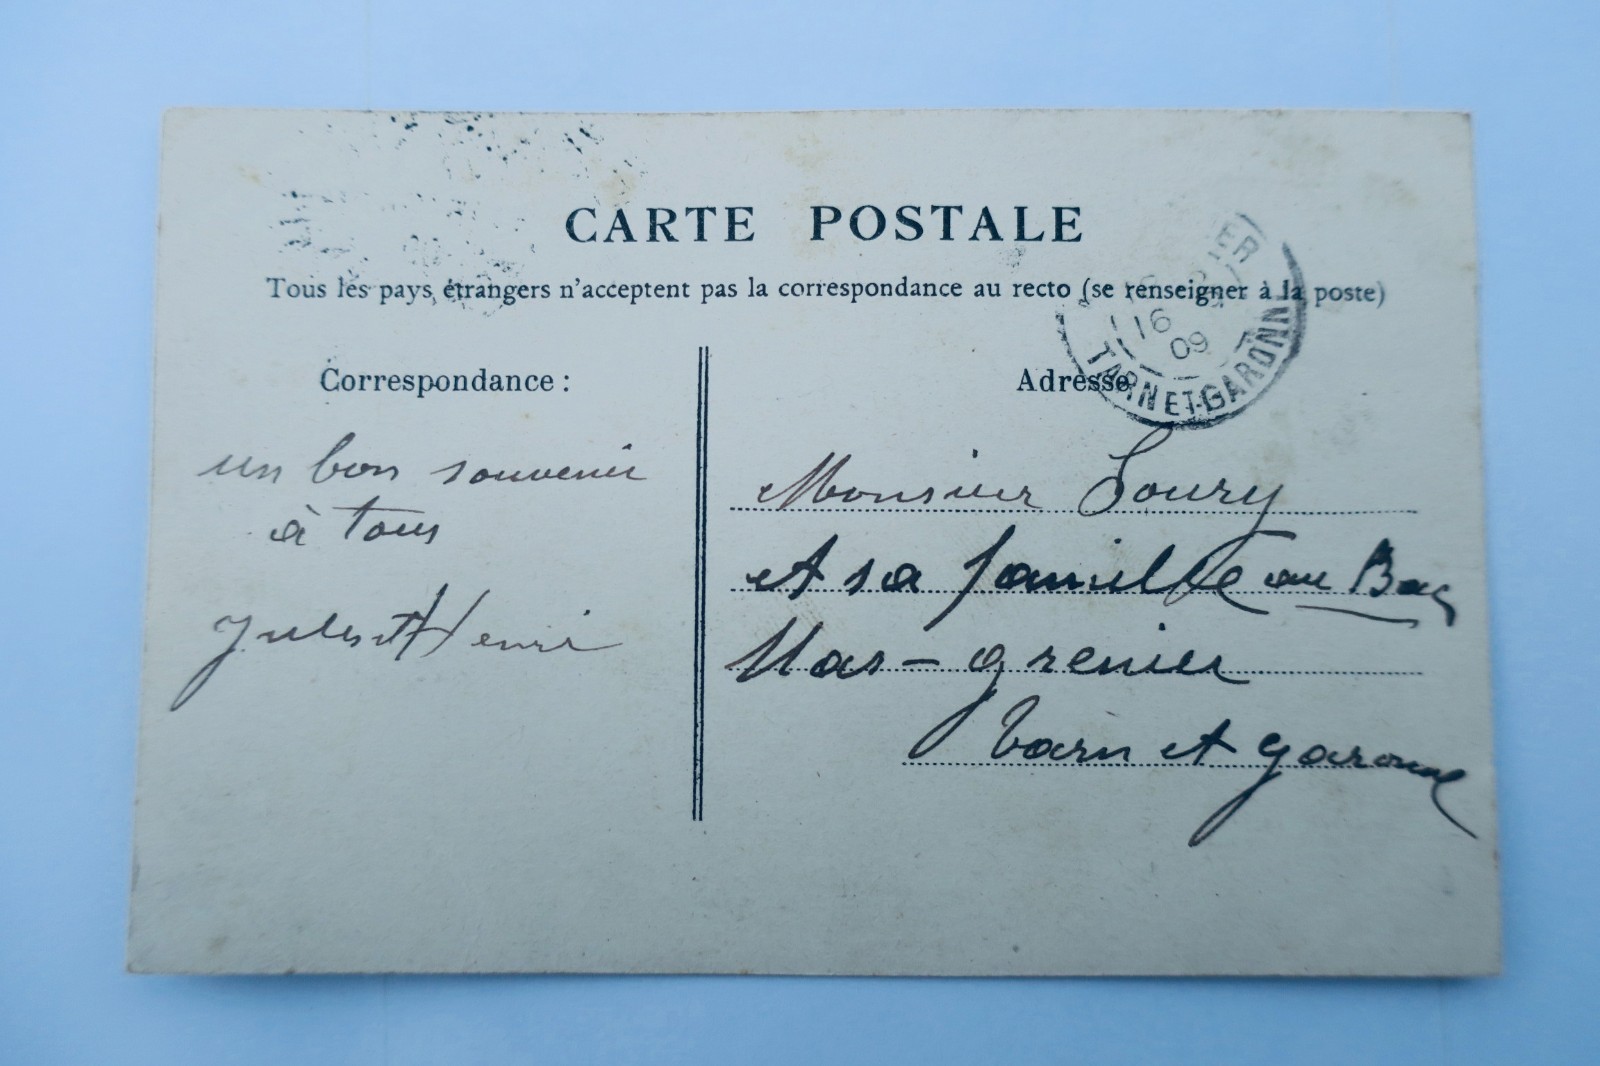 CARTE POSTALE
Tous les pays étrangers n'acceptent pas la correspondance au recto (se renseigner à la poste)
16
09
TARN ET-GARONNE
Correspondance :
Adresse
un bon souvenir
à tous
Jules et Henri
Monsieur Soury
et sa famille au Bac
Mas-grenier
Tarn et garonne